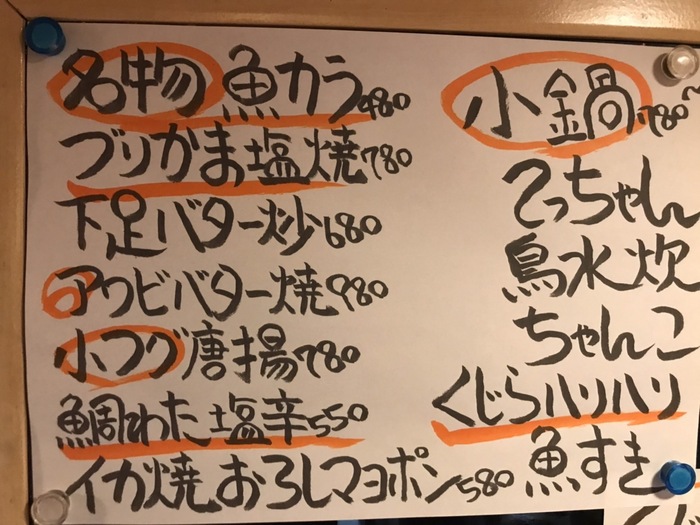 名物 魚カラ 480
づりかま塩焼 780
下足バター炒 680
アワビバター焼 980
小フグ唐揚 780
鯛わた塩辛 550
イカ焼おろしマヨポン 580
小鍋 780~
てっちゃん
鳥水炊
ちゃんこ
くじらハリハリ
魚すき